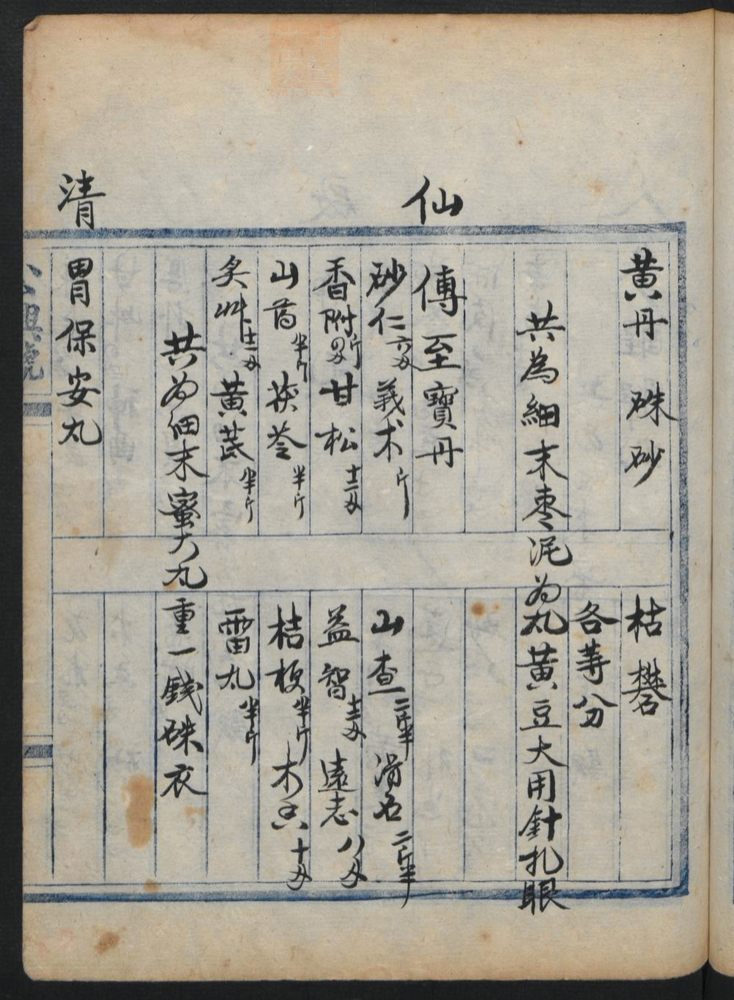 黃丹 硃砂 枯礬
各等分
共為細末枣泥为丸黃豆大用針扎眼
仙傳至寶丹
砂仁六刄 義术斤 山查二斤半 滑石二斤半
香附斤四刄 甘松十二刄 益智十二刄 遠志八刄
山药半斤 茯苓半斤 桔梗半斤 木香十刄
炙艸十二刄 黃芪半斤 雷丸半斤
共为细末蜜大丸重一錢硃衣
清胃保安丸